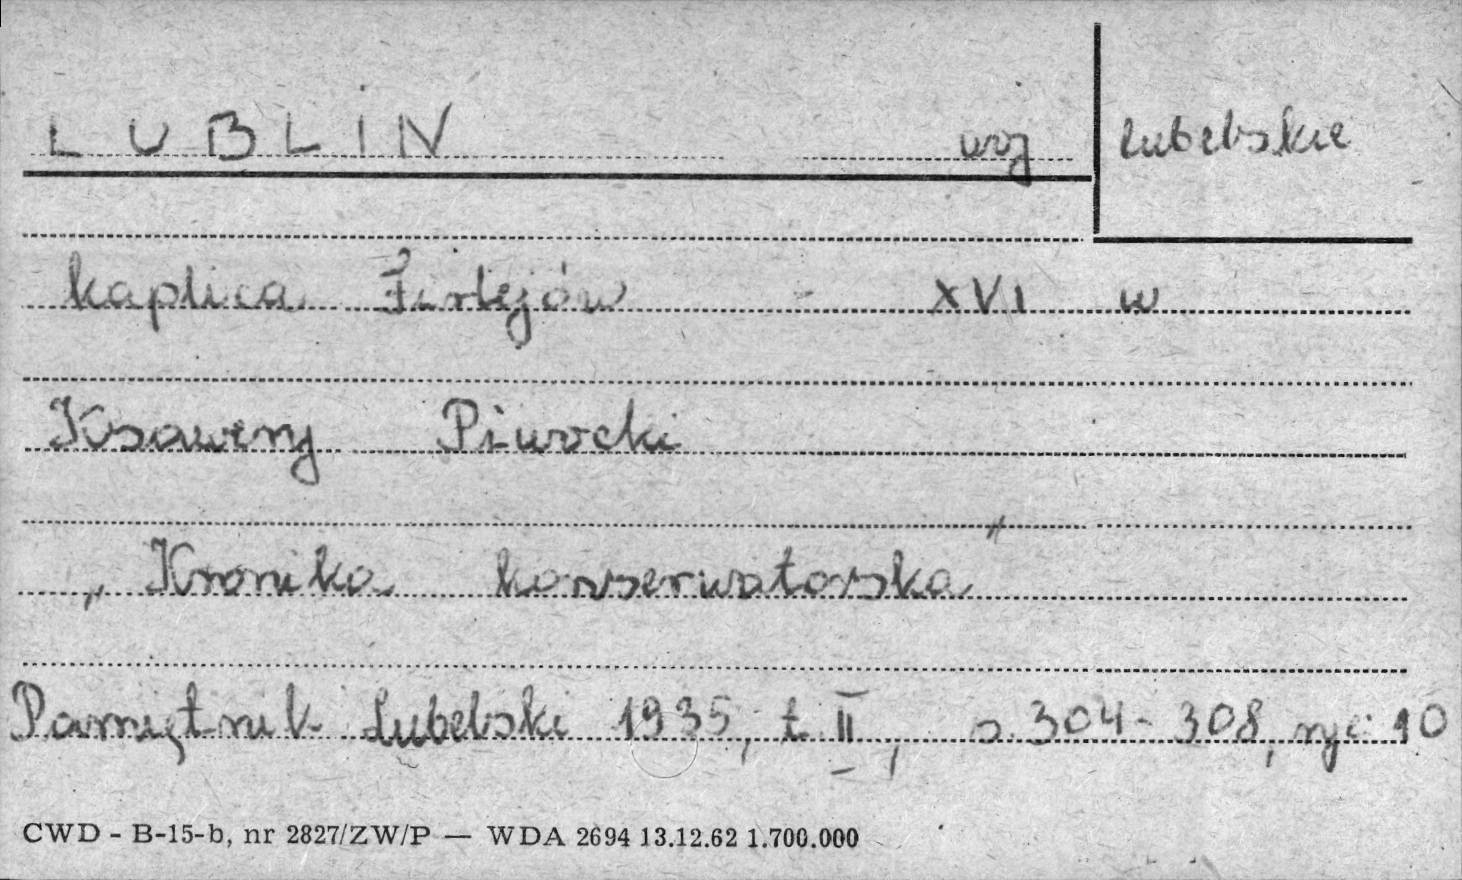 LUBLIN woj lubelskie
kaplica Firlejów - XVI w
Ksawery Piwocki
„Kronika konserwatorska"
Pamiętnik Lubelski 1935, t. II, s. 304-308, ryc 10
CWD - B-15-b, nr 2827/ZW/P — WDA 2694 13.12.62 1.700.000